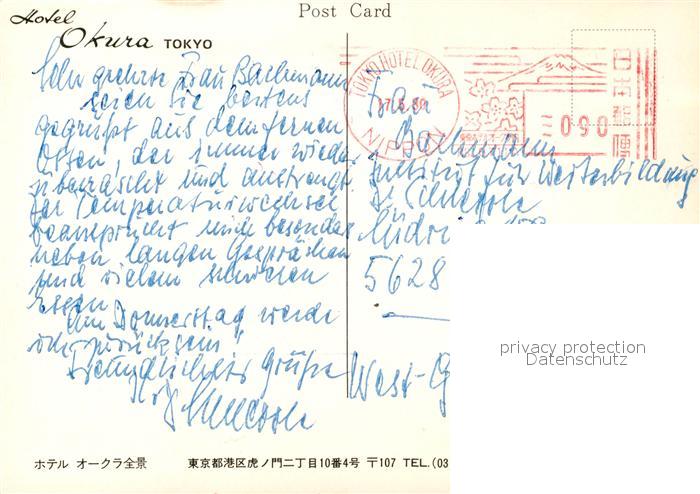 Post Card
Hotel
Okura TOKYO
TOKYO HOTEL OKURA
17.5.80
NIPPON
090
日本郵便
Sehr geehrte Frau Bachmann
seien Sie bestens
gegrüßt aus dem fernen
Osten, der immer wieder
überrascht und anstrengt.
Der Temperaturwechsel
beansprucht mich besonders
neben langen Gesprächen
und vielem schweren
Essen.
Am Donnerstag werde
ich zurück sein!
Freundlicher Grüße
Ihr
Frau
Bachmann
Institut für Weiterbildung
5628
West-G
privacy protection
Datenschutz
ホテル オークラ全景 東京都港区虎ノ門二丁目10番4号 〒107 TEL.(03